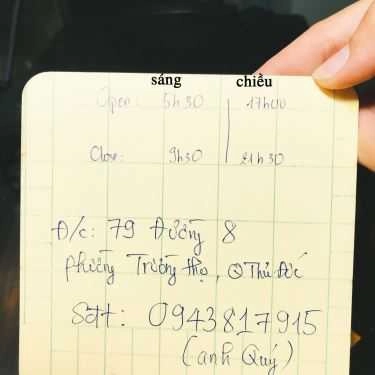 sáng chiều
Open: 5h30 17h00
Close: 9h30 21h30
Đ/c: 79 Đường 8
phường Trường thọ, Q Thủ Đức
Sđt: 0943817915
(anh Quý)